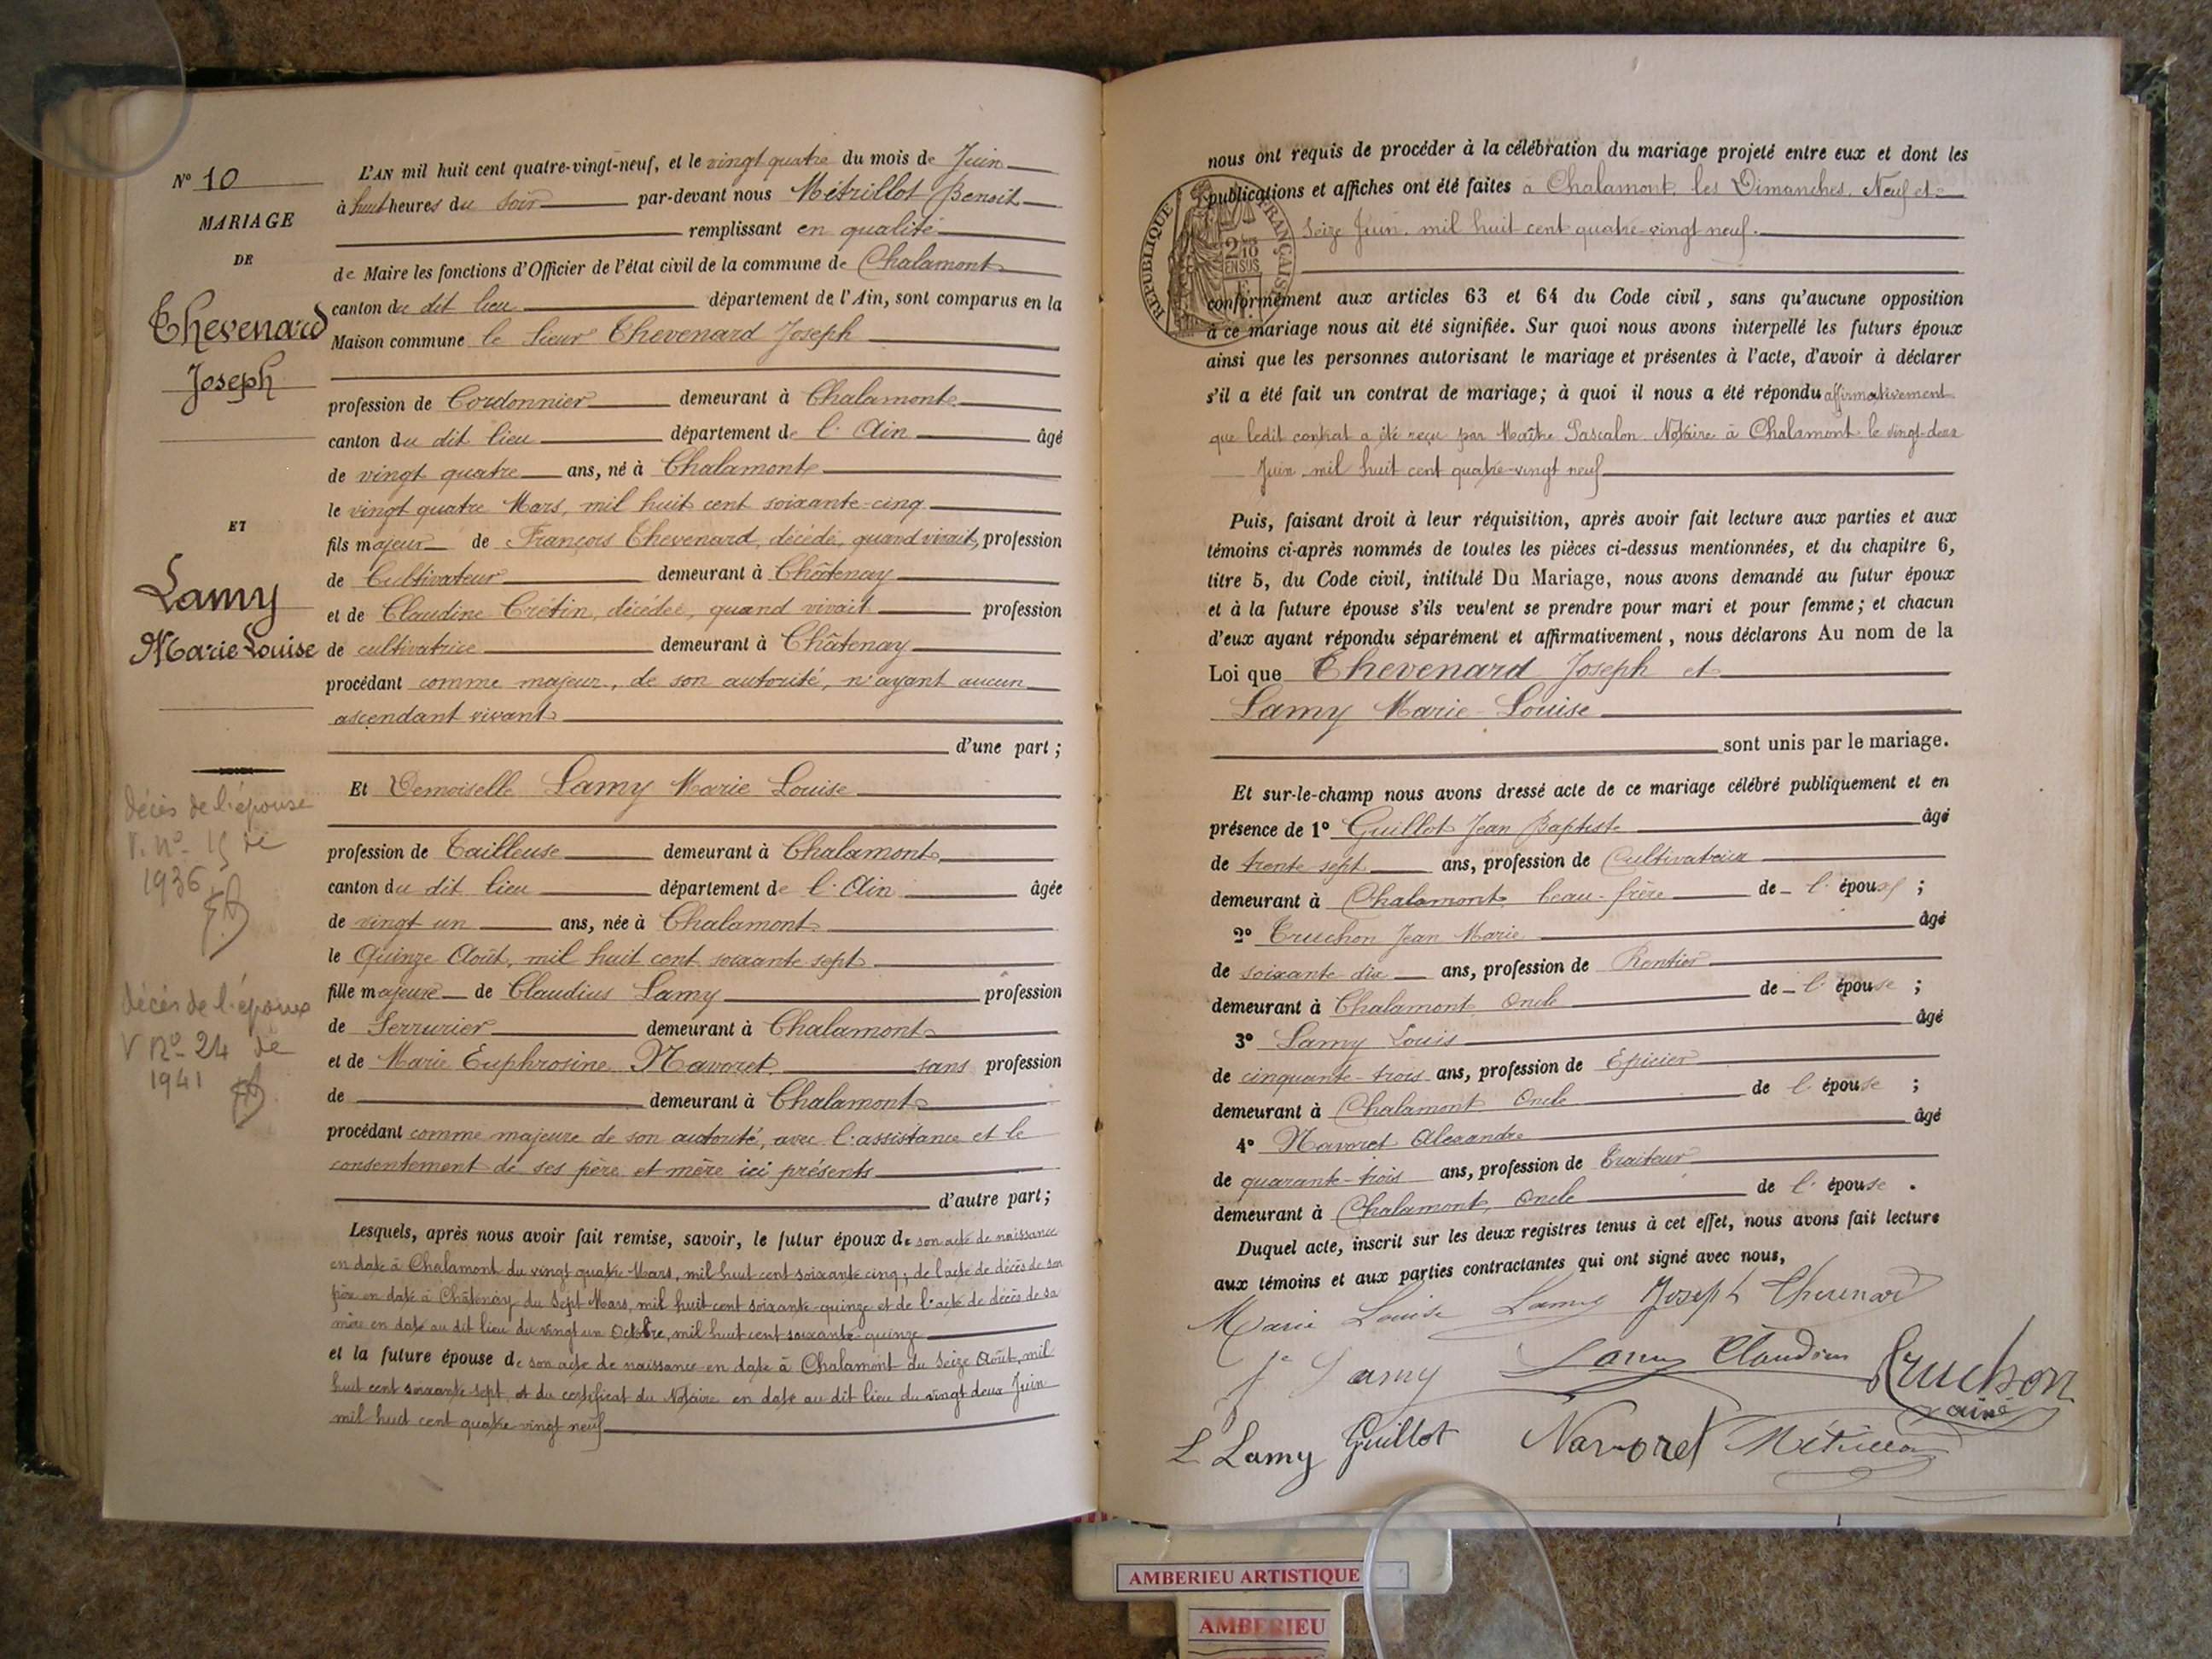 N° 10
MARIAGE
DE
Thevenard
Joseph
ET
Lamy
Marie Louise
décès de l'épouse
V. n° 15 de
1936
décès de l'époux
V n° 24 de
1941
L'AN mil huit cent quatre-vingt-neuf, et le vingt quatre du mois de Juin
à huit heures du soir par-devant nous Métrillot Benoit
remplissant en qualité
de Maire les fonctions d'Officier de l'état civil de la commune de Chalamont
canton du dit lieu département de l'Ain, sont comparus en la
Maison commune le Sieur Thevenard Joseph
profession de Cordonnier demeurant à Chalamont
canton du dit lieu département de l'Ain âgé
de vingt quatre ans, né à Chalamont
le vingt quatre Mars, mil huit cent soixante-cinq
fils majeur de François Thevenard, décédé, quand vivait, profession
de Cultivateur demeurant à Châtenay
et de Claudine Crétin, décédée, quand vivait profession
de cultivatrice demeurant à Châtenay
procédant comme majeur, de son autorité, n'ayant aucun
ascendant vivant
d'une part ;
Et Demoiselle Lamy Marie Louise
profession de Tailleuse demeurant à Chalamont
canton du dit lieu département de l'Ain âgée
de vingt un ans, née à Chalamont
le Quinze Août, mil huit cent soixante sept
fille majeure de Claudius Lamy profession
de Serrurier demeurant à Chalamont
et de Marie Euphrosine Navoret sans profession
de demeurant à Chalamont
procédant comme majeure de son autorité, avec l'assistance et le
consentement de ses père et mère ici présents
d'autre part ;
Lesquels, après nous avoir fait remise, savoir, le futur époux de son acte de naissance
en date à Chalamont du vingt quatre Mars, mil huit cent soixante cinq ; de l'acte de décès de son
père en date à Châtenay du Sept Mars, mil huit cent soixante-quinze et de l'acte de décès de sa
mère en date au dit lieu du vingt un Octobre, mil huit cent soixante-quinze
et la future épouse de son acte de naissance en date à Chalamont du Seize Août, mil
huit cent soixante sept, et du certificat du Notaire en date au dit lieu du vingt deux Juin
mil huit cent quatre-vingt neuf
nous ont requis de procéder à la célébration du mariage projeté entre eux et dont les
publications et affiches ont été faites à Chalamont, les Dimanches, Neuf et
Seize Juin, mil huit cent quatre-vingt neuf.
RÉPUBLIQUE FRANÇAISE
conformément aux articles 63 et 64 du Code civil, sans qu'aucune opposition
à ce mariage nous ait été signifiée. Sur quoi nous avons interpellé les futurs époux
ainsi que les personnes autorisant le mariage et présentes à l'acte, d'avoir à déclarer
s'il a été fait un contrat de mariage; à quoi il nous a été répondu affirmativement
que ledit contrat a été reçu par Maître Pascalon Notaire à Chalamont le vingt-deux
Juin mil huit cent quatre-vingt neuf
Puis, faisant droit à leur réquisition, après avoir fait lecture aux parties et aux
témoins ci-après nommés de toutes les pièces ci-dessus mentionnées, et du chapitre 6,
titre 5, du Code civil, intitulé Du Mariage, nous avons demandé au futur époux
et à la future épouse s'ils veulent se prendre pour mari et pour femme ; et chacun
d'eux ayant répondu séparément et affirmativement, nous déclarons Au nom de la
Loi que Thevenard Joseph et
Lamy Marie-Louise
sont unis par le mariage.
Et sur-le-champ nous avons dressé acte de ce mariage célébré publiquement et en
présence de 1° Guillot Jean Baptiste âgé
de trente sept ans, profession de Cultivateur
demeurant à Chalamont, beau-frère de l'époux ;
2° Truchon Jean Marie âgé
de soixante-dix ans, profession de Rentier
demeurant à Chalamont Oncle de l'épouse ;
3° Lamy Louis âgé
de cinquante-trois ans, profession de Epicier
demeurant à Chalamont Oncle de l'épouse ;
4° Navoret Alexandre âgé
de quarante-trois ans, profession de Traiteur
demeurant à Chalamont, Oncle de l'épouse .
Duquel acte, inscrit sur les deux registres tenus à cet effet, nous avons fait lecture
aux témoins et aux parties contractantes qui ont signé avec nous,
Marie Louise Lamy Joseph Thevenard
Lamy Lamy Claudius Truchon
ainé
L Lamy Guillot Navoret Métrillot
AMBERIEU ARTISTIQUE
AMBERIEU